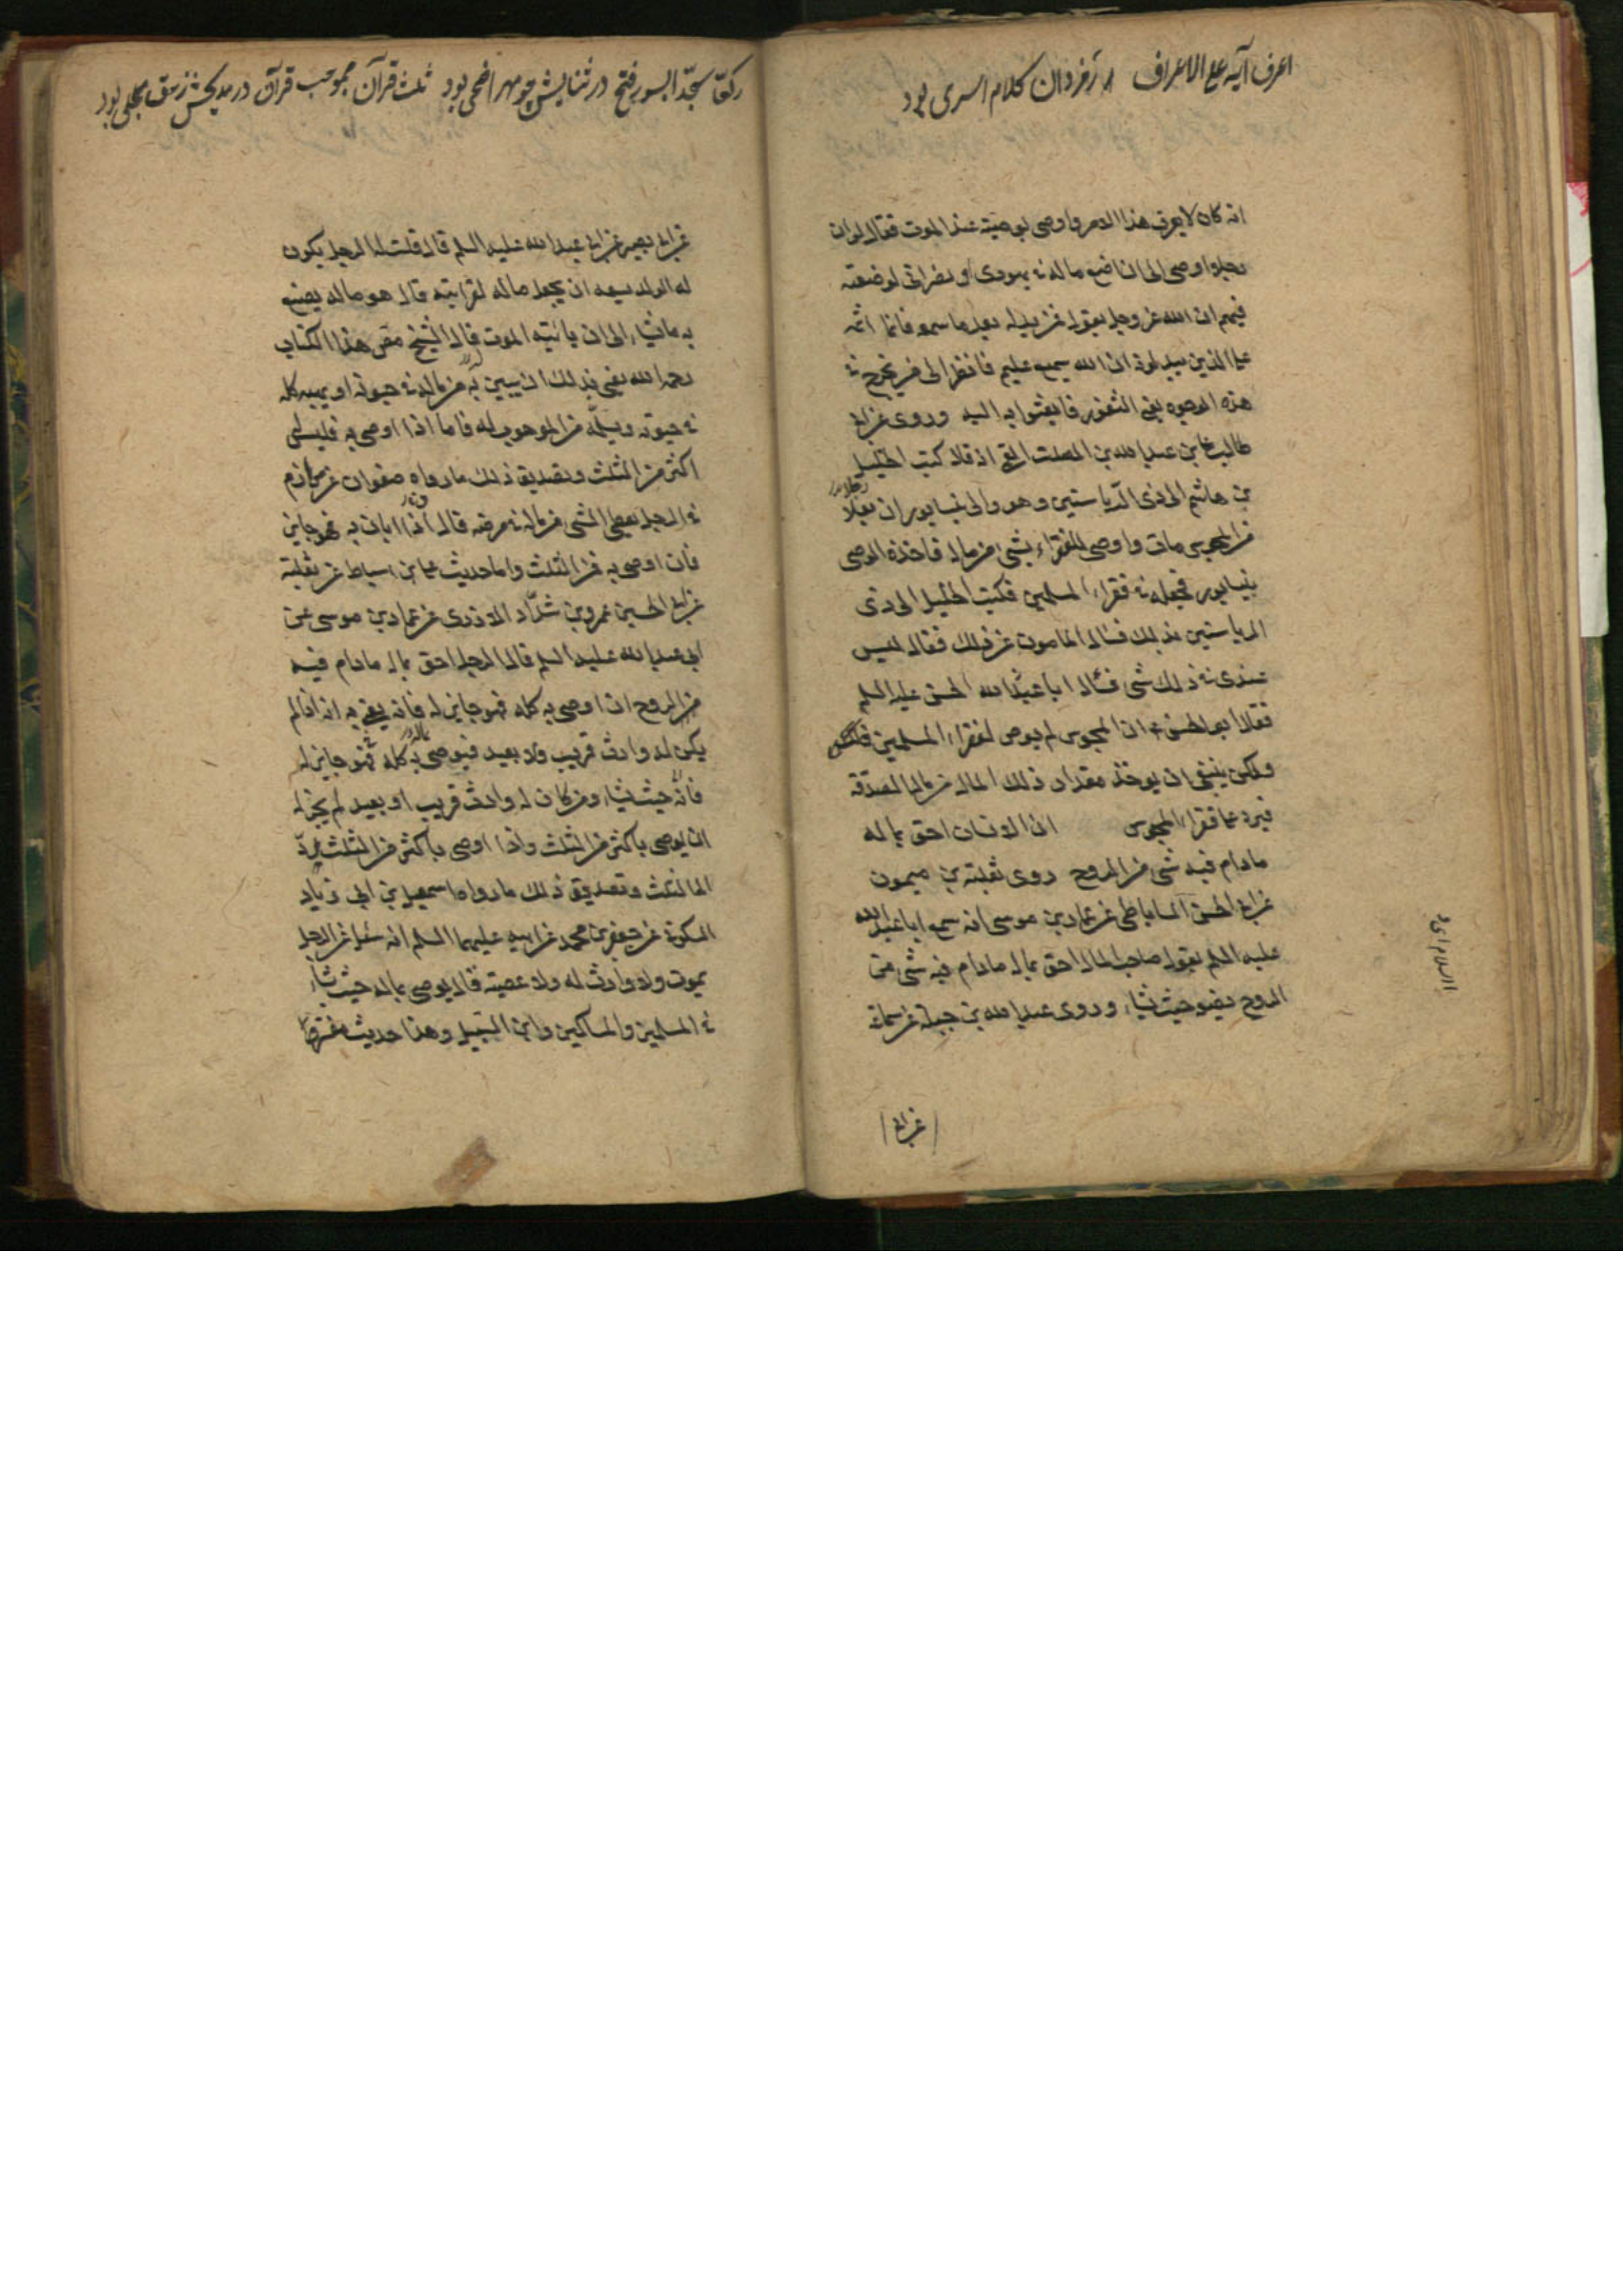 اعرف آیه علی الاعراف
کلام اسری بود
انه کان لا یعرف هذا الامر واوصی بوصیته عند الموت فقال لو ان
رجلا اوصی الی ان اضع ماله فی یهودی او نصرانی لوضعته
فیهم ان الله عز وجل یقول فمن بدله بعد ما سمعه فانما اثمه
علی الذین یبدلونه ان الله سمیع علیم فانظر الی من یخرج فی
هذه الوجوه یعنی الثغور فابعثوا به الیه وروی عن ابی
طالب عن عبدالله بن الصلت القمی انه قال کتب الخلیل
بن هاشم الی ذی الریاستین وهو والی نیسابور ان رجلا
من المجوس مات واوصی للفقراء بشیء من ماله فاخذه الوصی
بنیسابور فجعله فی فقراء المسلمین فکتب الخلیل الی ذی
الریاستین بذلک فسال المامون عن ذلک فقال لیس
عندی فی ذلک شی فسال ابا الحسن علیه السلم
فقال ابو الحسن ع ان المجوس لم یوص لفقراء المسلمین
ولکن ینبغی ان یوخذ مقدار ذلک المال من مال الصدقة
فیرد علی فقراء المجوس ان الانسان احق بماله
مادام فیه شی من الروح روی ثعلبة بن میمون
عن ابی الحسن الساباطی عن عمار بن موسی انه سمع ابا عبدالله
علیه السلم یقول صاحب المال احق بماله مادام فیه شی من
الروح یضعه حیث شاء وروی عبدالله بن جبلة عن سماعة
عن ابی
رکعا سجدا بسور فتح در ثنایش چو مهر اضحی بود ثلث قرآن بموجب قرآن
عن ابی بصیر عن ابی عبدالله علیه السلم قال قلت له الرجل یکون
له الولد یسعه ان یجعل ماله لقرابته قال هو ماله یصنع
به ماشاء الی ان یاتیه الموت قال الشیخ مصنف هذا الکتاب
رحمه الله یعنی بذلک ان یبین به من ماله فی حیوته او یهبه کله
فی حیوته ویسلمه من الموهوب له فاما اذا اوصی به فلیس له
اکثر من الثلث وتصدیق ذلک ما رواه صفوان عن مرازم
فی الرجل یعطی الشی من ماله فی مرضه قال اذا ابان به فهو جایز
فان اوصی به فمن الثلث واما حدیث علی بن اسباط عن ثعلبة
عن ابی الحسین عمرو بن شداد الازدی عن عمار بن موسی عن
ابی عبدالله علیه السلم قال الرجل احق بماله مادام فیه
من الروح ان اوصی به کله فهو جایز له فانه یعنی به انه اذا لم
یکن له وارث قریب ولا بعید فیوصی بماله کله فهو جایز له
فانه حیث شاء ومن کان له وارث قریب او بعید لم یجز له
ان یوصی باکثر من الثلث واذا اوصی باکثر من الثلث یرد
الی الثلث وتصدیق ذلک ما رواه اسمعیل بن ابی زیاد
السکونی عن جعفر بن محمد عن ابیه علیهما السلم انه سئل عن الرجل
یموت ولا وارث له ولا عصبة قال یوصی بماله حیث شاء
فی المسلمین والمساکین وابن السبیل وهذا حدیث مفسر